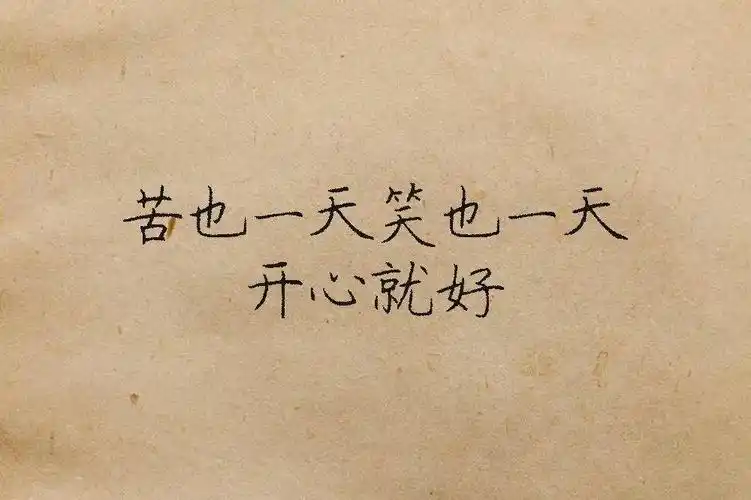 苦也一天笑也一天
开心就好